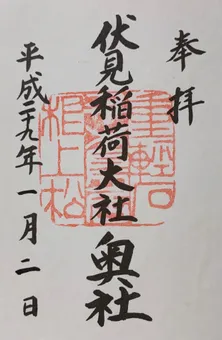 奉拝
伏見稲荷大社奥社
平成二十九年一月二日
重軽石
根上松